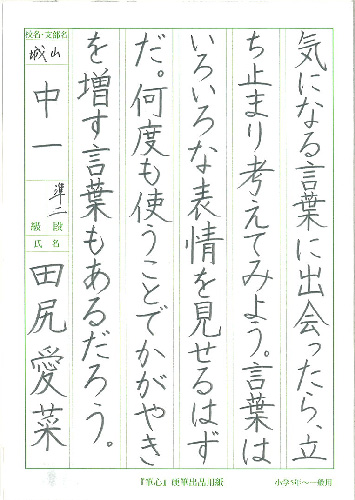 気になる言葉に出会ったら、立
ち止まり考えてみよう。言葉は
いろいろな表情を見せるはず
だ。何度も使うことでかがやき
を増す言葉もあるだろう。
校名・支部名
城山
中一
準二
級段
氏名
田尻愛菜
『筆心』硬筆出品用紙
小学5年〜一般用